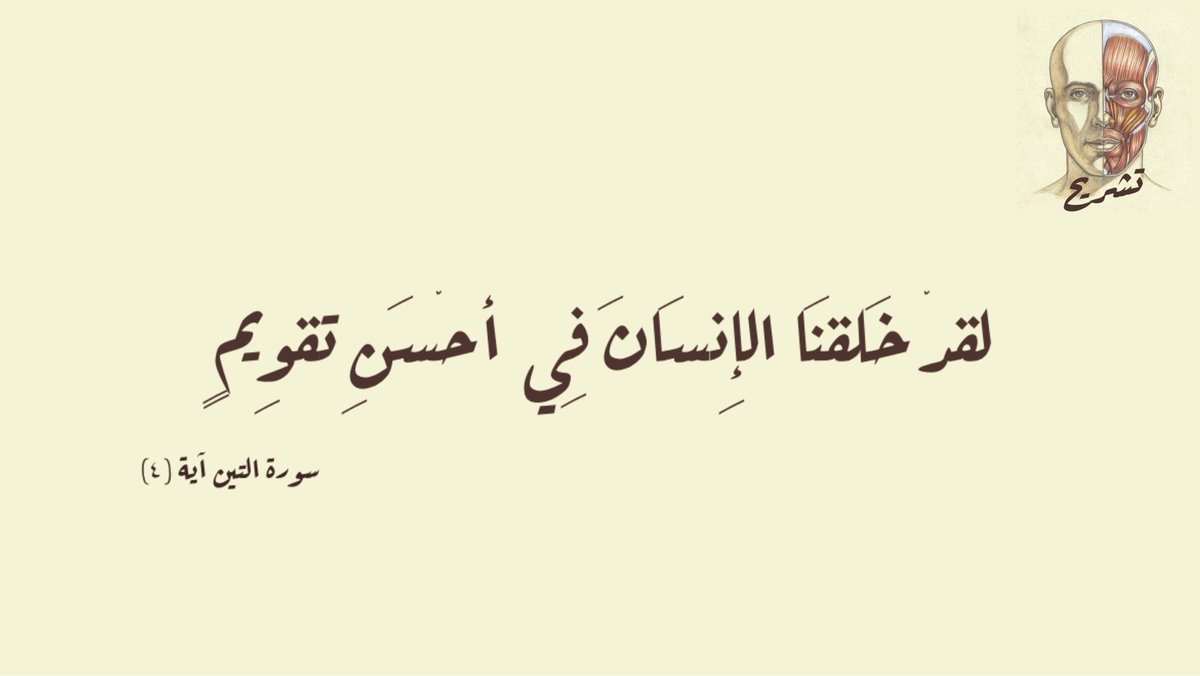 تشريح
لقدْ خَلَقنَا الإِنسَانَ فِي أحْسَنِ تقوِيمٍ
سورة التين آية (٤)